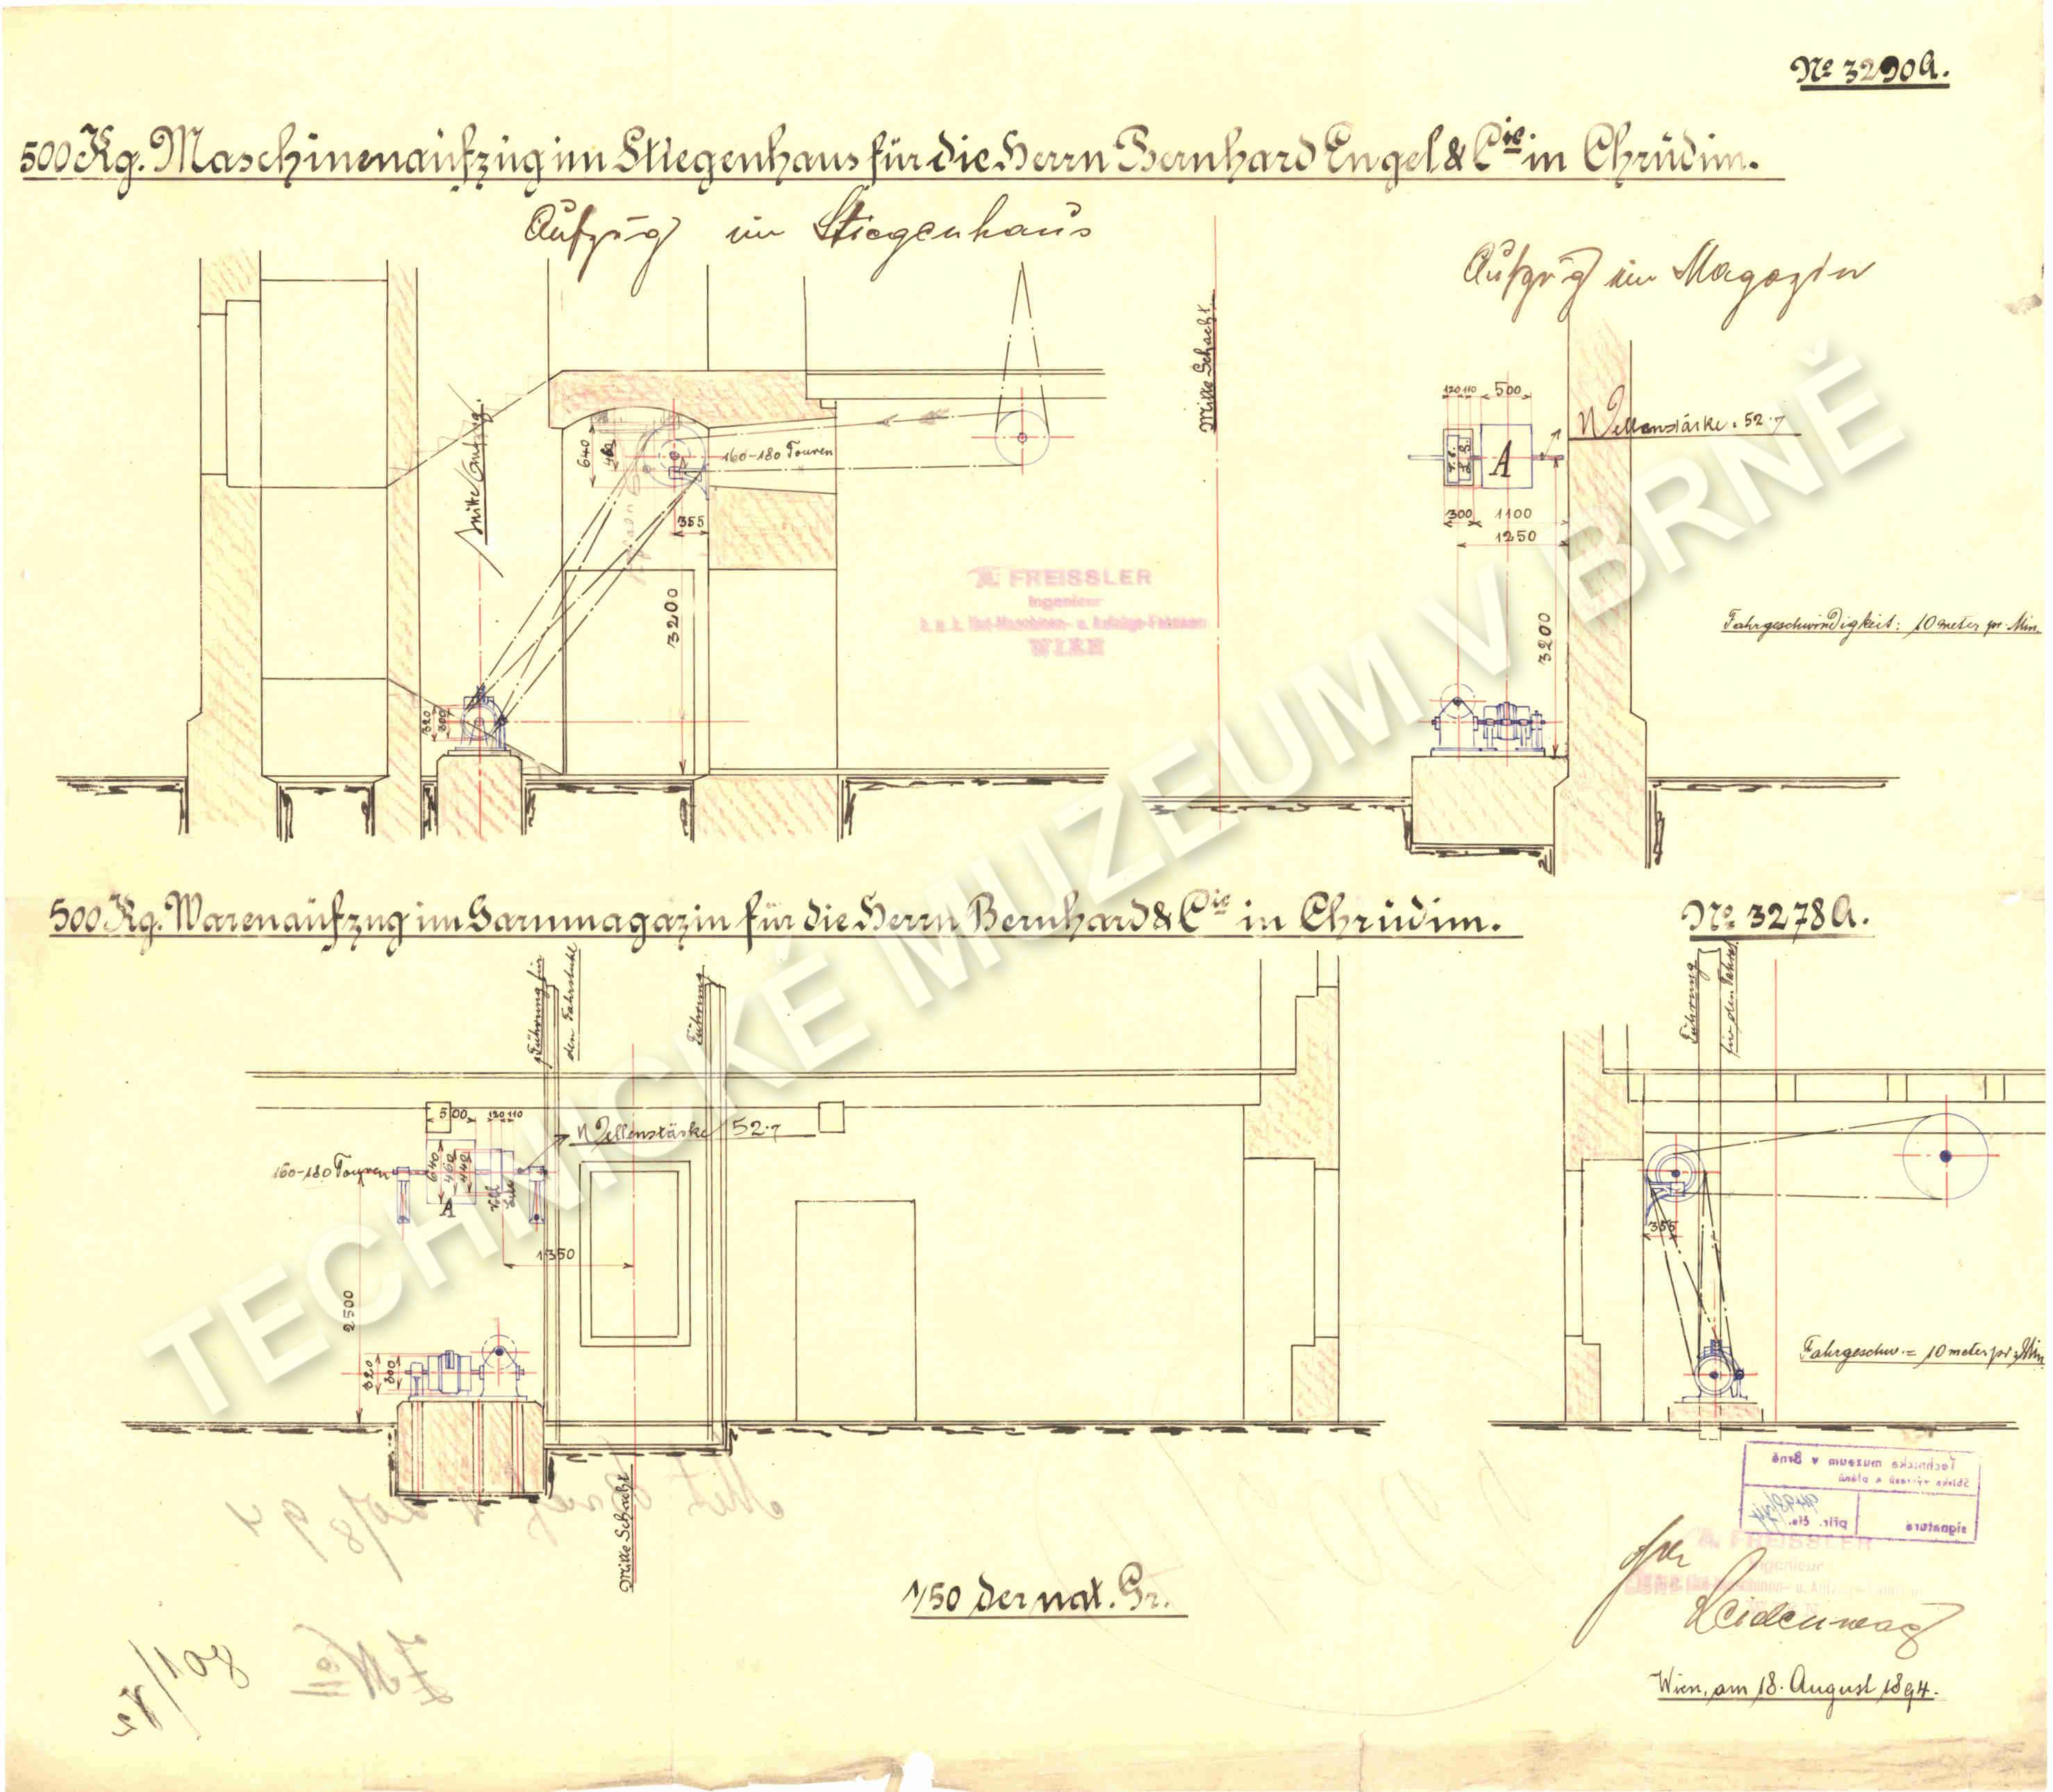 Nº 3290A.
500 Kg. Maschinenaufzug im Stiegenhaus für die Herrn Bernhard Engel & Cie in Chrudim.
Aufzug im Stiegenhaus
Aufzug im Magazin
Mitte Schacht.
120 110 500
Wellenstärke = 52·7
A
640
460
160-180 Touren
355
300 1100
1250
3200
3200
320
300
A. FREISSLER
Ingenieur
WIEN
Fahrgeschwindigkeit: 10 meter pr. Min.
500 Kg. Warenaufzug im Garnmagazin für die Herrn Bernhard & Cie in Chrudim.
Nº 3278A.
Führung für
den Fahrstuhl
Führung
Führung
für den Fahrst.
500 120 110
Wellenstärke 52·7
160-180 Touren
640
460
440
Voll
A
1350
355
2500
320
300
Fahrgeschw. = 10 meter pr. Min
Mitte Schacht
1/50 der nat. Gr.
Technické muzeum v Brně
Sbírka výkresů a plánů
signatura
přír. čís.
A. FREISSLER
Ingenieur
Wien, am 18. August 1894.
TECHNICKÉ MUZEUM V BRNĚ